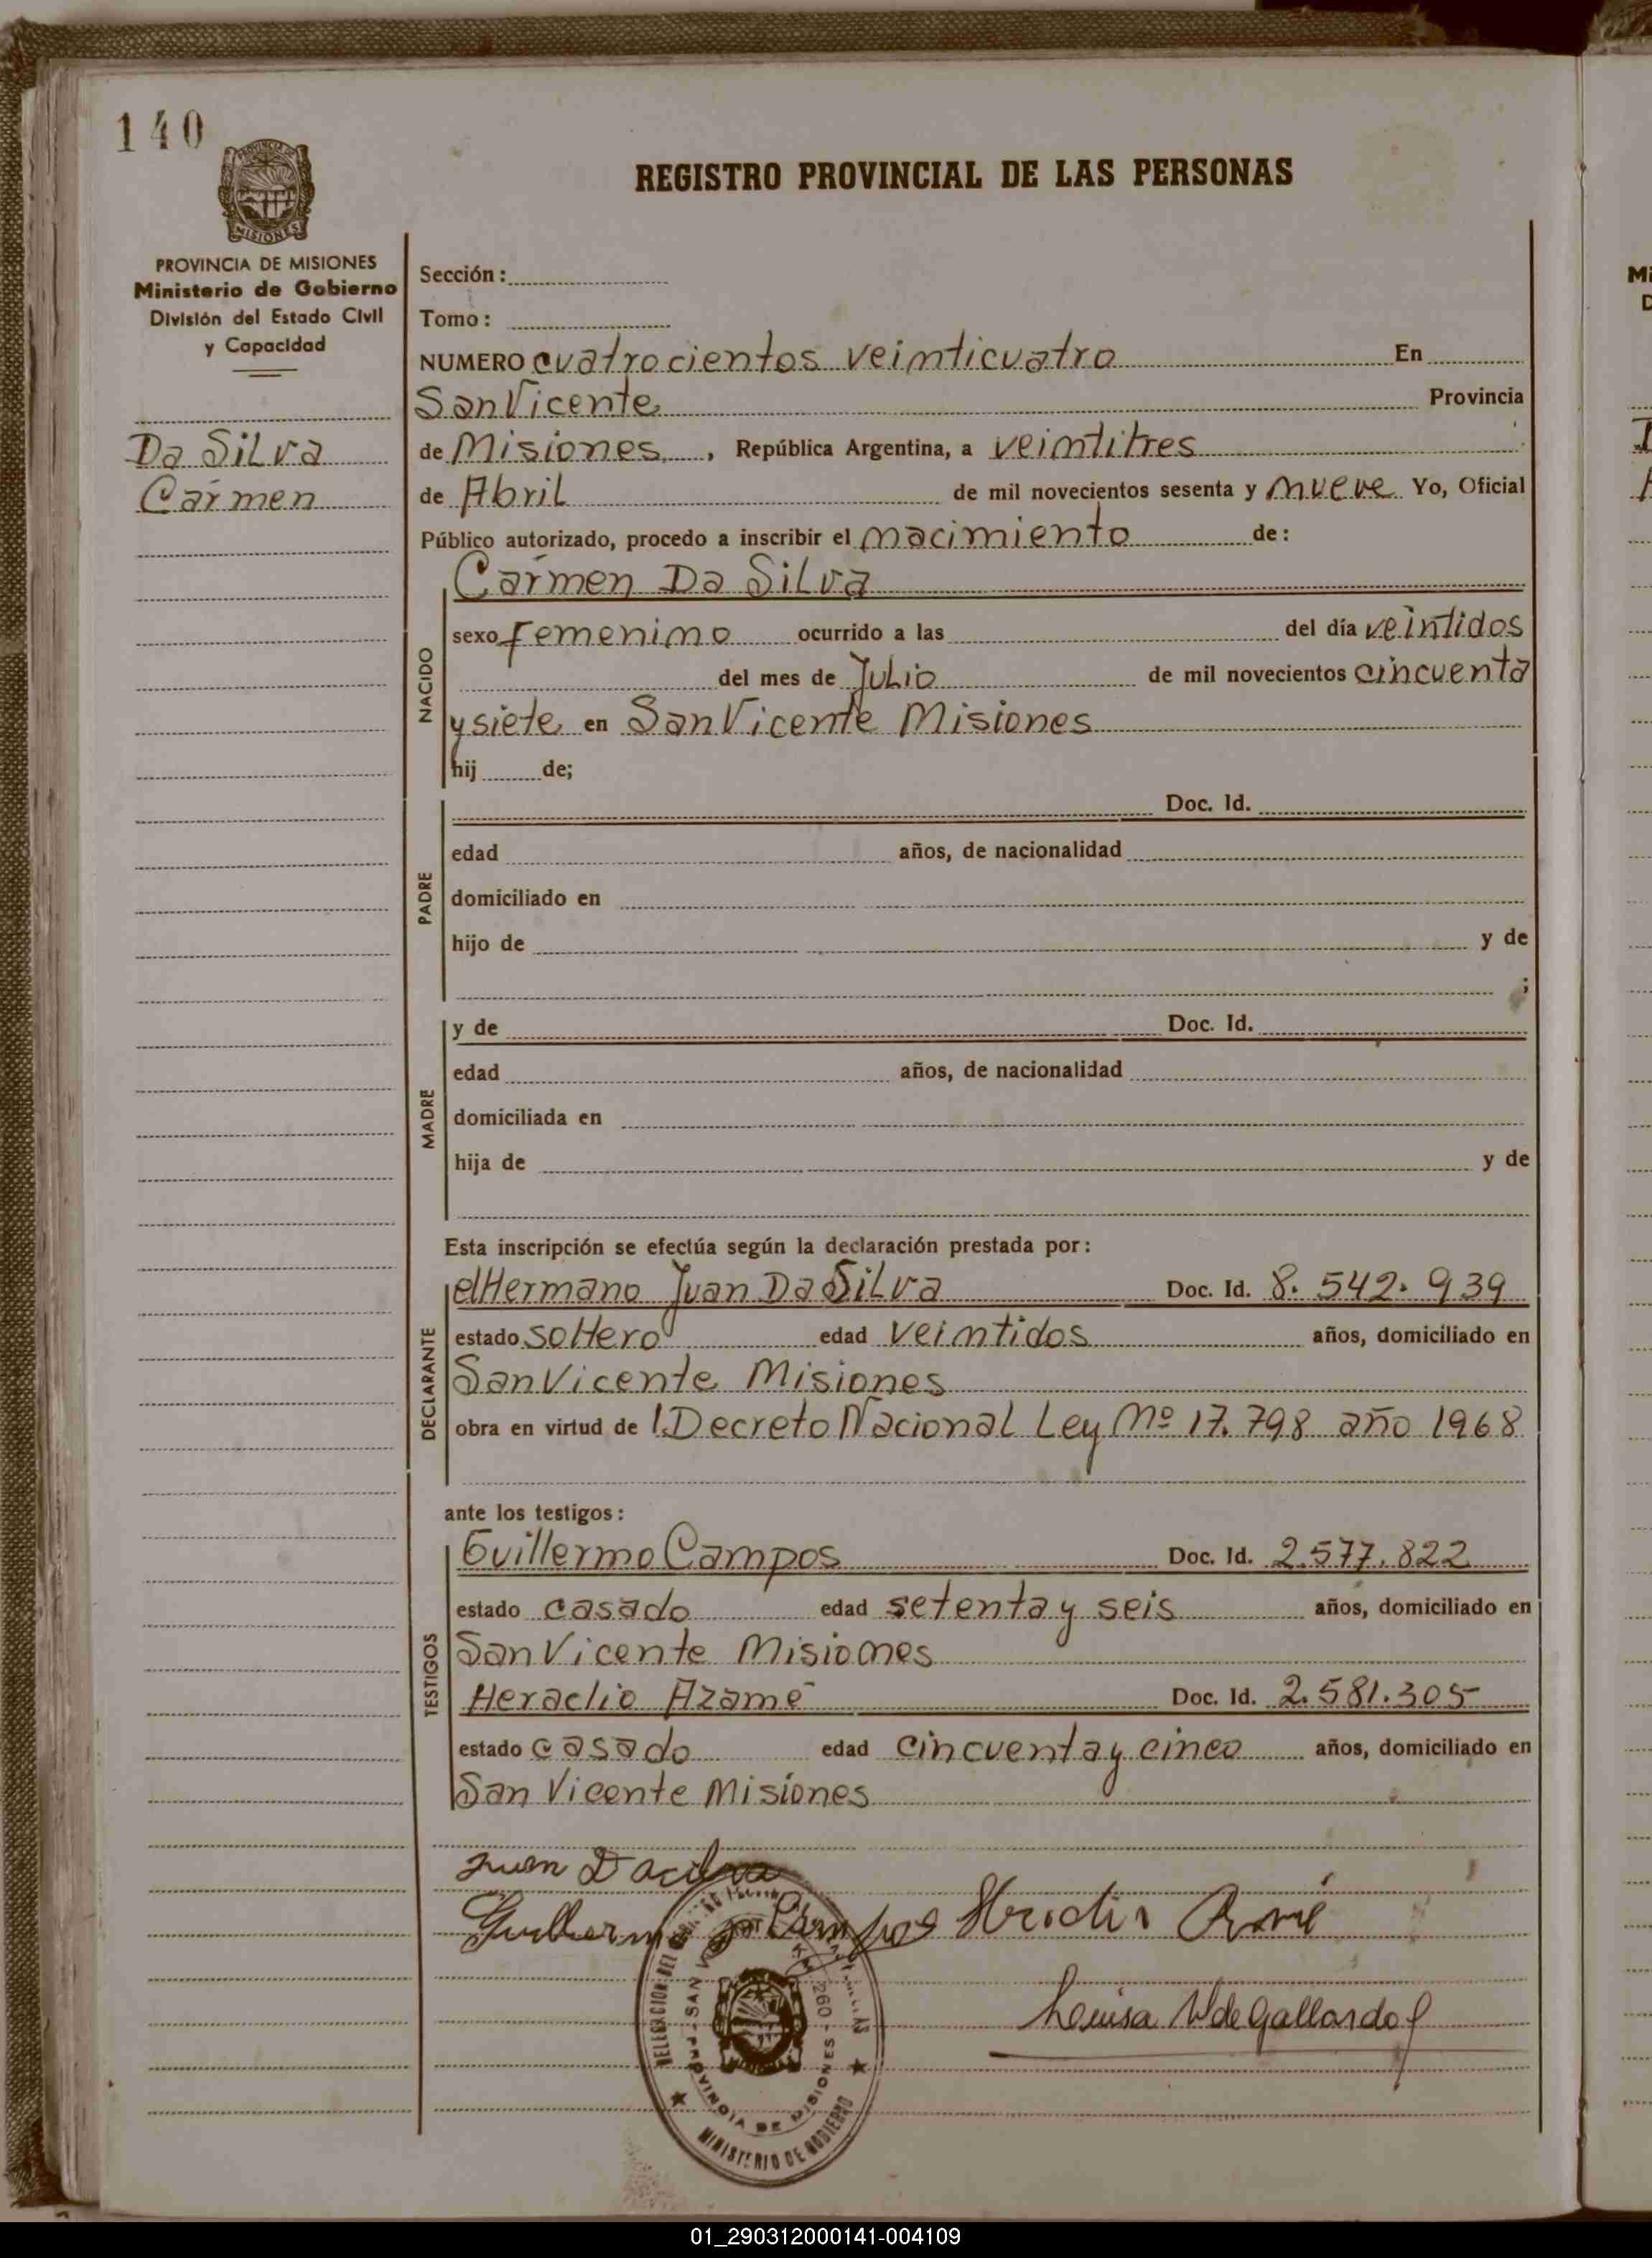 140
MISIONES
REGISTRO PROVINCIAL DE LAS PERSONAS
PROVINCIA DE MISIONES
Ministerio de Gobierno
División del Estado Civil
y Capacidad
Da Silva
Carmen
Sección:
Tomo:
NUMERO cuatrocientos veinticuatro En
San Vicente Provincia
de Misiones, República Argentina, a veintitres
de Abril de mil novecientos sesenta y nueve Yo, Oficial
Público autorizado, procedo a inscribir el nacimiento de:
NACIDO
Carmen Da Silva
sexo femenino ocurrido a las del día veintidos
del mes de Julio de mil novecientos cincuenta
y siete en San Vicente Misiones
hij de;
PADRE
Doc. Id.
edad años, de nacionalidad
domiciliado en
hijo de y de
;
MADRE
y de Doc. Id.
edad años, de nacionalidad
domiciliada en
hija de y de
Esta inscripción se efectúa según la declaración prestada por:
DECLARANTE
el Hermano Juan Da Silva Doc. Id. 8.542.939
estado soltero edad veintidos años, domiciliado en
San Vicente Misiones
obra en virtud de Decreto Nacional Ley Nº 17.798 año 1968
ante los testigos:
TESTIGOS
Guillermo Campos Doc. Id. 2.577.822
estado casado edad setenta y seis años, domiciliado en
San Vicente Misiones
Heraclio Azame Doc. Id. 2.581.305
estado casado edad cincuenta y cinco años, domiciliado en
San Vicente Misiones
Juan Dacilva
Guillermo Campos
Luisa de Gallardo
DELEGACION DEL
SAN
260
PROVINCIA DE MISIONES
MINISTERIO DE GOBIERNO
01_290312000141-004109